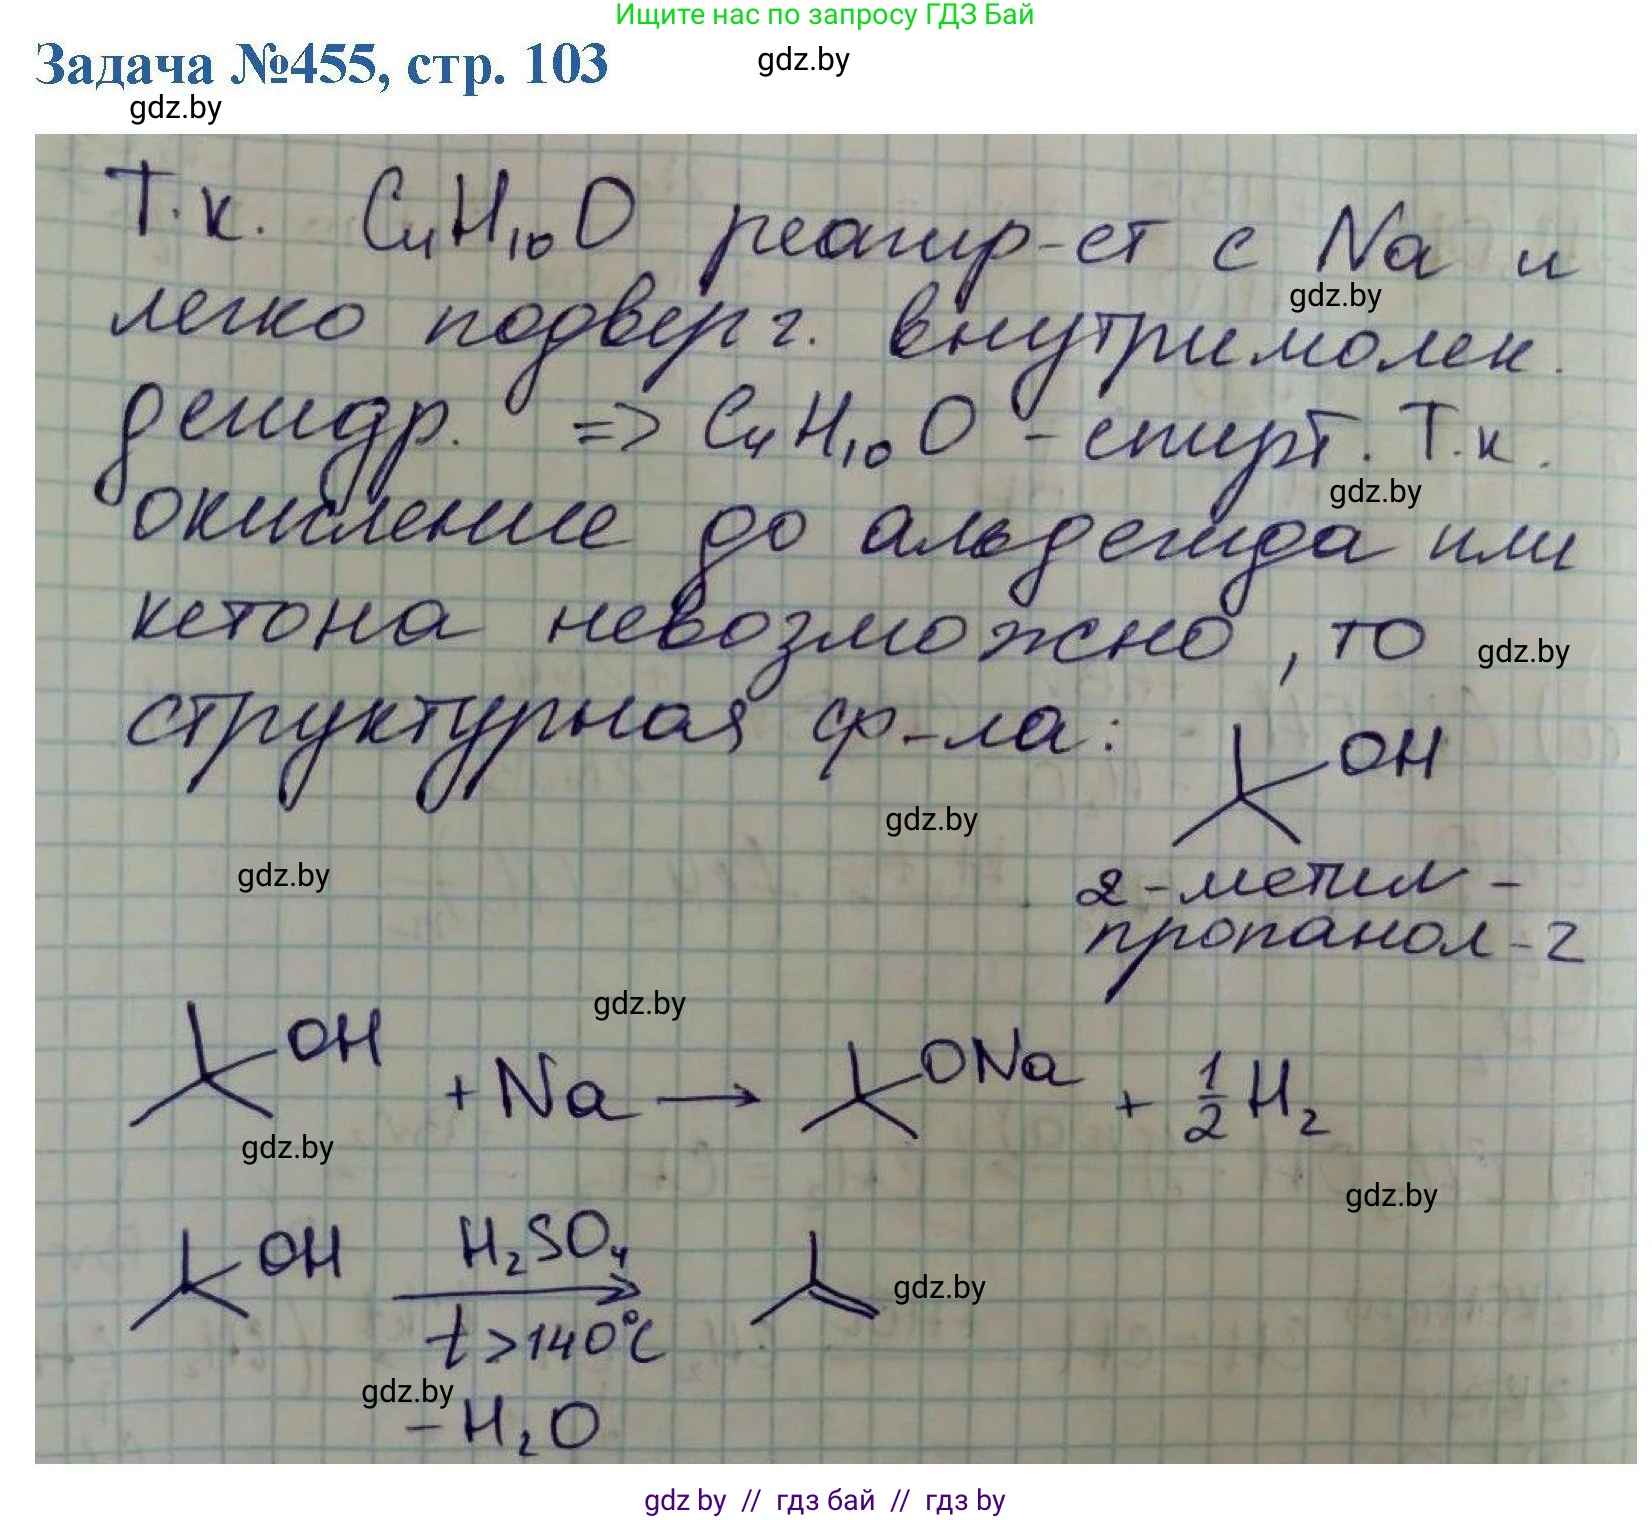 Ищите нас по запросу ГДЗ Бай
Задача №455, стр. 103
gdz.by
gdz.by
Т.к. C₄H₁₀O реагир-ет с Na и
gdz.by
легко подверг. внутримолек.
дегидр. => C₄H₁₀O - спирт. Т.к.
gdz.by
окисление до альдегида или
кетона невозможно, то
gdz.by
структурная ф-ла:
OH
gdz.by
gdz.by
2-метил-
пропанол-2
gdz.by
OH + Na → ONa + 1/2 H₂
gdz.by
gdz.by
OH H₂SO₄
gdz.by
t>140°C
gdz.by
-H₂O
gdz by // гдз бай // гдз by